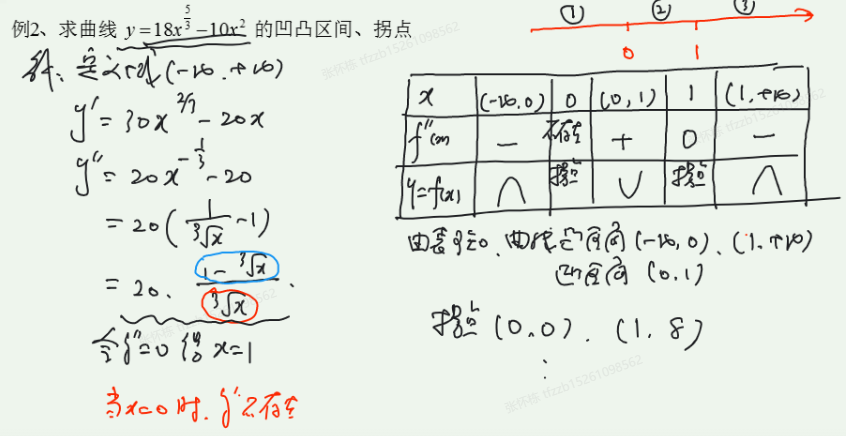 例2、求曲线 y=18x^{5/3}-10x² 的凹凸区间、拐点
解:定义域(-∞,+∞)
y'=30x^{2/3}-20x
y''=20x^{-1/3}-20
=20(1/∛x-1)
=20·(1-∛x)/∛x.
令y''=0得x=1
当x=0时,y''不存在
① ② ③
0 1
x (-∞,0) 0 (0,1) 1 (1,+∞)
f''(x) - 不存在 + 0 -
y=f(x) ∩ 拐点 ∪ 拐点 ∩
由表可知,曲线凸区间(-∞,0),(1,+∞)
凹区间(0,1)
拐点(0,0),(1,8)
⋮
张怀苌 tfzzb15261098562